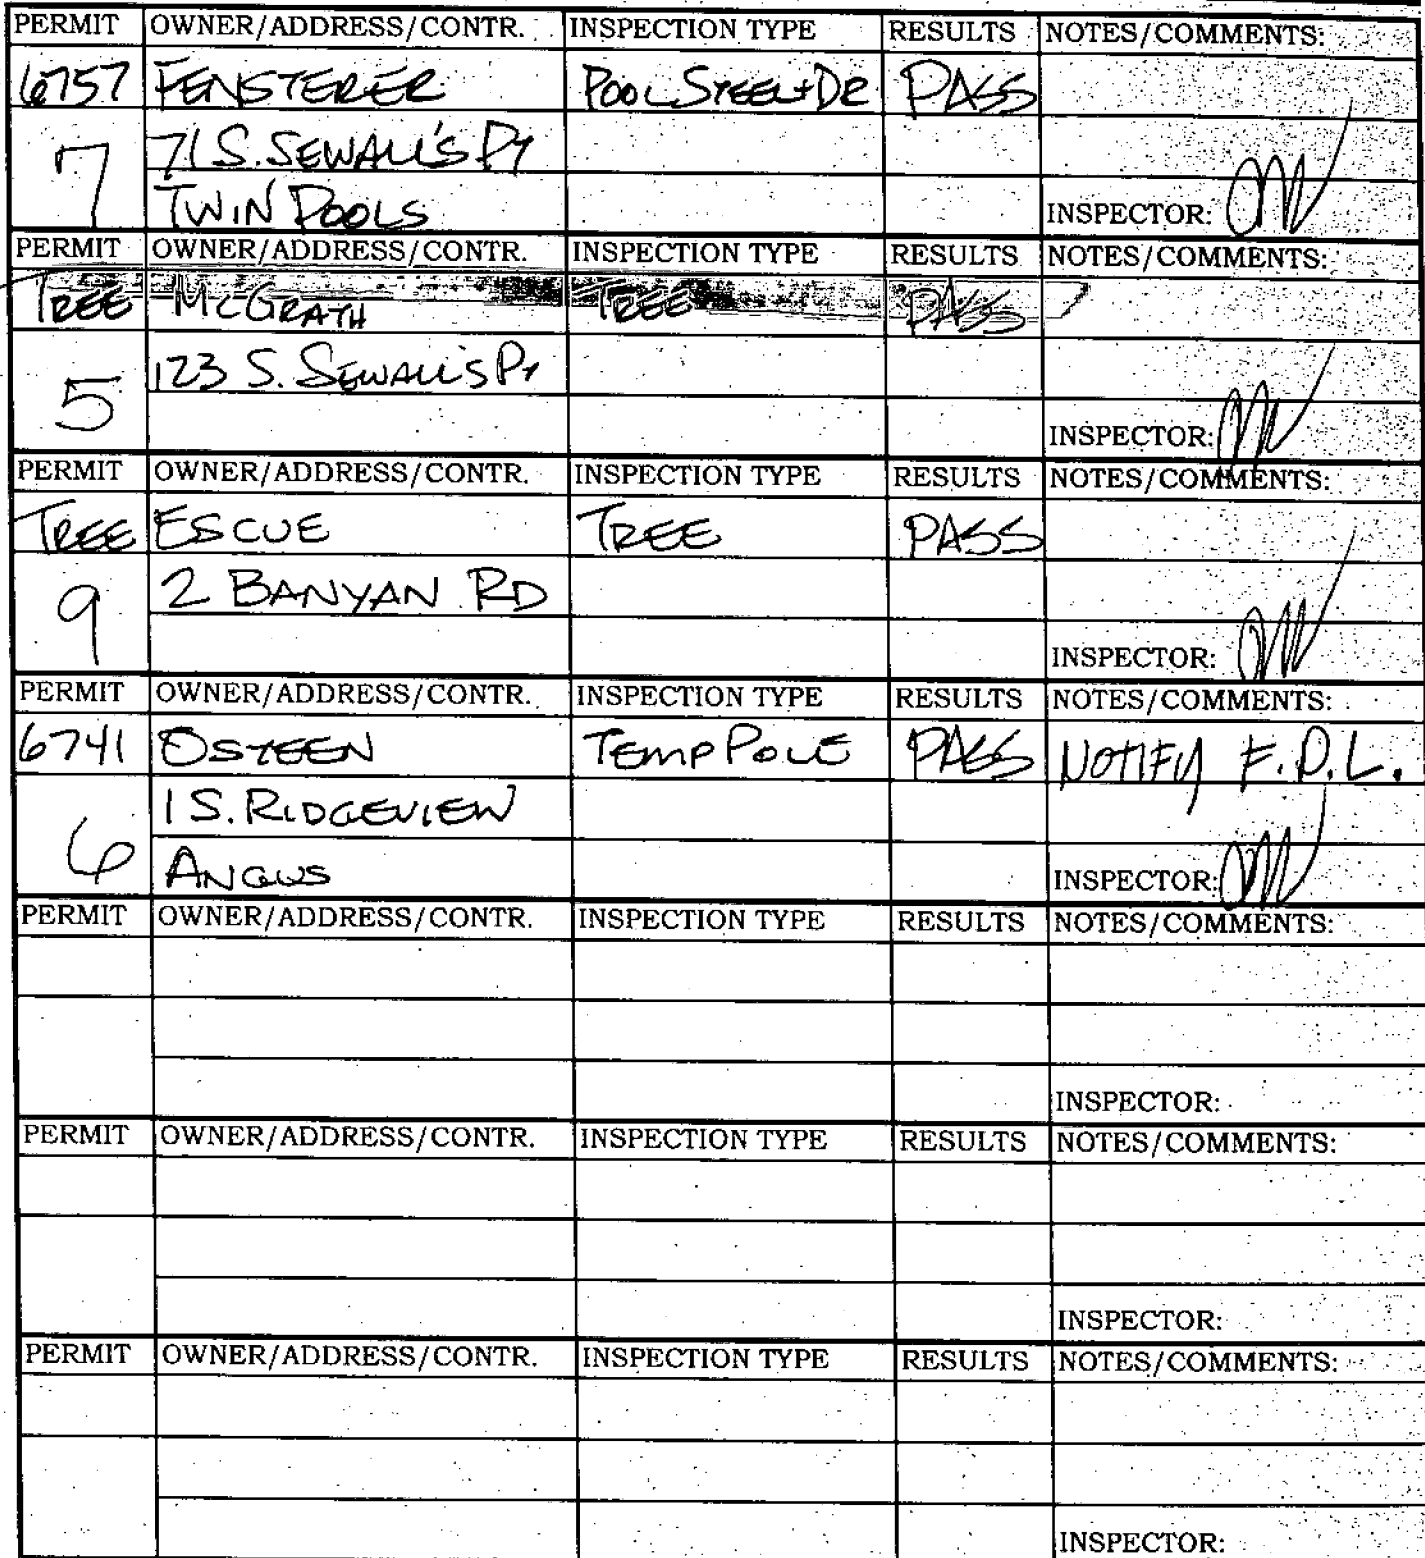 PERMIT OWNER/ADDRESS/CONTR. INSPECTION TYPE RESULTS NOTES/COMMENTS:
6757 FENSTERER POOL STEEL+DR PASS
7 71 S. SEWALL'S PT
TWIN POOLS INSPECTOR:
PERMIT OWNER/ADDRESS/CONTR. INSPECTION TYPE RESULTS NOTES/COMMENTS:
TREE MCGRATH TREE PASS
5 123 S. SEWALL'S PT
INSPECTOR:
PERMIT OWNER/ADDRESS/CONTR. INSPECTION TYPE RESULTS NOTES/COMMENTS:
TREE ESCUE TREE PASS
9 2 BANYAN RD
INSPECTOR:
PERMIT OWNER/ADDRESS/CONTR. INSPECTION TYPE RESULTS NOTES/COMMENTS:
6741 OSTEEN TEMP POLE PASS NOTIFY F.P.L.
6 1 S. RIDGEVIEW
ANGUS INSPECTOR:
PERMIT OWNER/ADDRESS/CONTR. INSPECTION TYPE RESULTS NOTES/COMMENTS:
INSPECTOR:
PERMIT OWNER/ADDRESS/CONTR. INSPECTION TYPE RESULTS NOTES/COMMENTS:
INSPECTOR:
PERMIT OWNER/ADDRESS/CONTR. INSPECTION TYPE RESULTS NOTES/COMMENTS:
INSPECTOR: